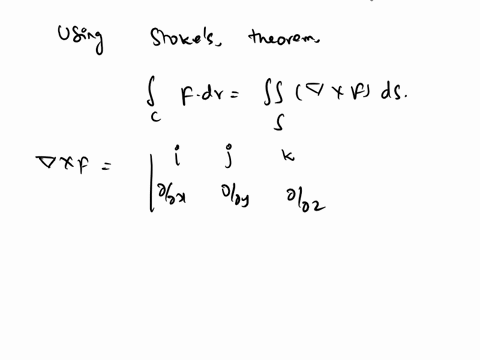 Using Stoke's, theorem
∫ F.dr = ∬ (∇ x F) ds.
C S
∇ x F = | i j k
∂/∂x ∂/∂y ∂/∂z